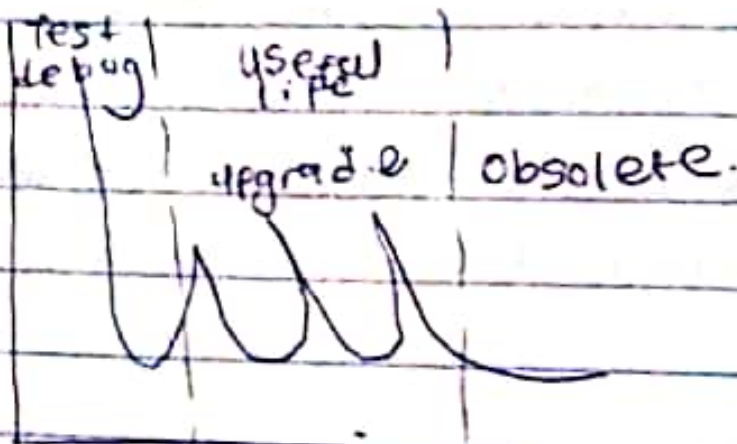 Test
debug
useful
life
upgrade
obsolete.